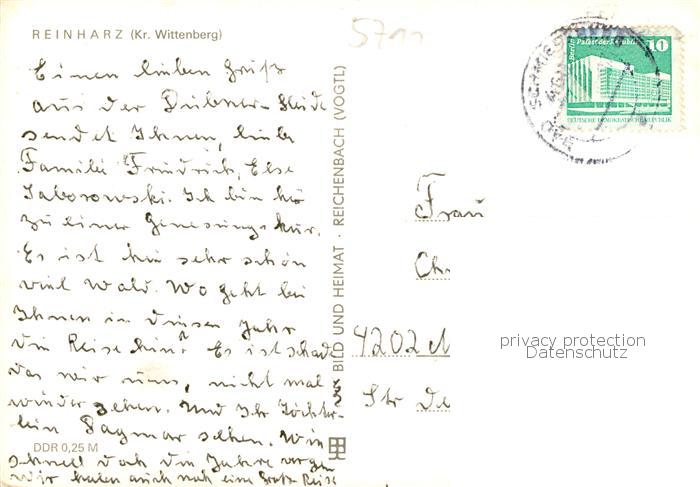 REINHARZ (Kr. Wittenberg)
Einen lieben Gruß
aus der Dübener Heide
sendet Ihnen, liebe
Familie Friedrich, Else
Ich bin hier
zu einer Genesungskur.
Es ist hier sehr schön
viel Wald. Wo geht bei
Ihnen in diesen Jahr
die Reise hin? Es ist schade
das wir uns, nicht mal
wieder sehen. Und Ihr Töchter-
lein Dagmar sehen. Wie
schnell doch die Jahre vergen
wir haben auch noch eine Große Reise
DDR 0,25 M
BILD UND HEIMAT · REICHENBACH (VOGTL)
5711
Berlin Palast der Republik
10
DEUTSCHE DEMOKRATISCHE REPUBLIK
BAD SCHMIEDEBERG
Frau
Ch
4202 M
Str De
privacy protection
Datenschutz